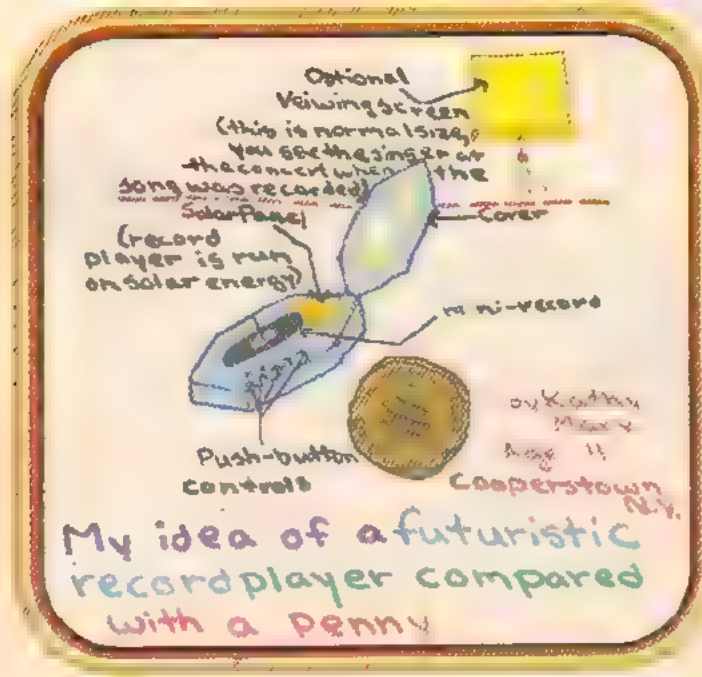 Optional
Veiwing screen
(this is normal size,
you see the singer at
the concert when the
song was recorded)
Solar Panel
(record
player is run
on solar energy)
Cover
mini-record
Push-button
controls
by Kathy
Age 11
Cooperstown
N.Y.
My idea of a futuristic
record player compared
with a penny